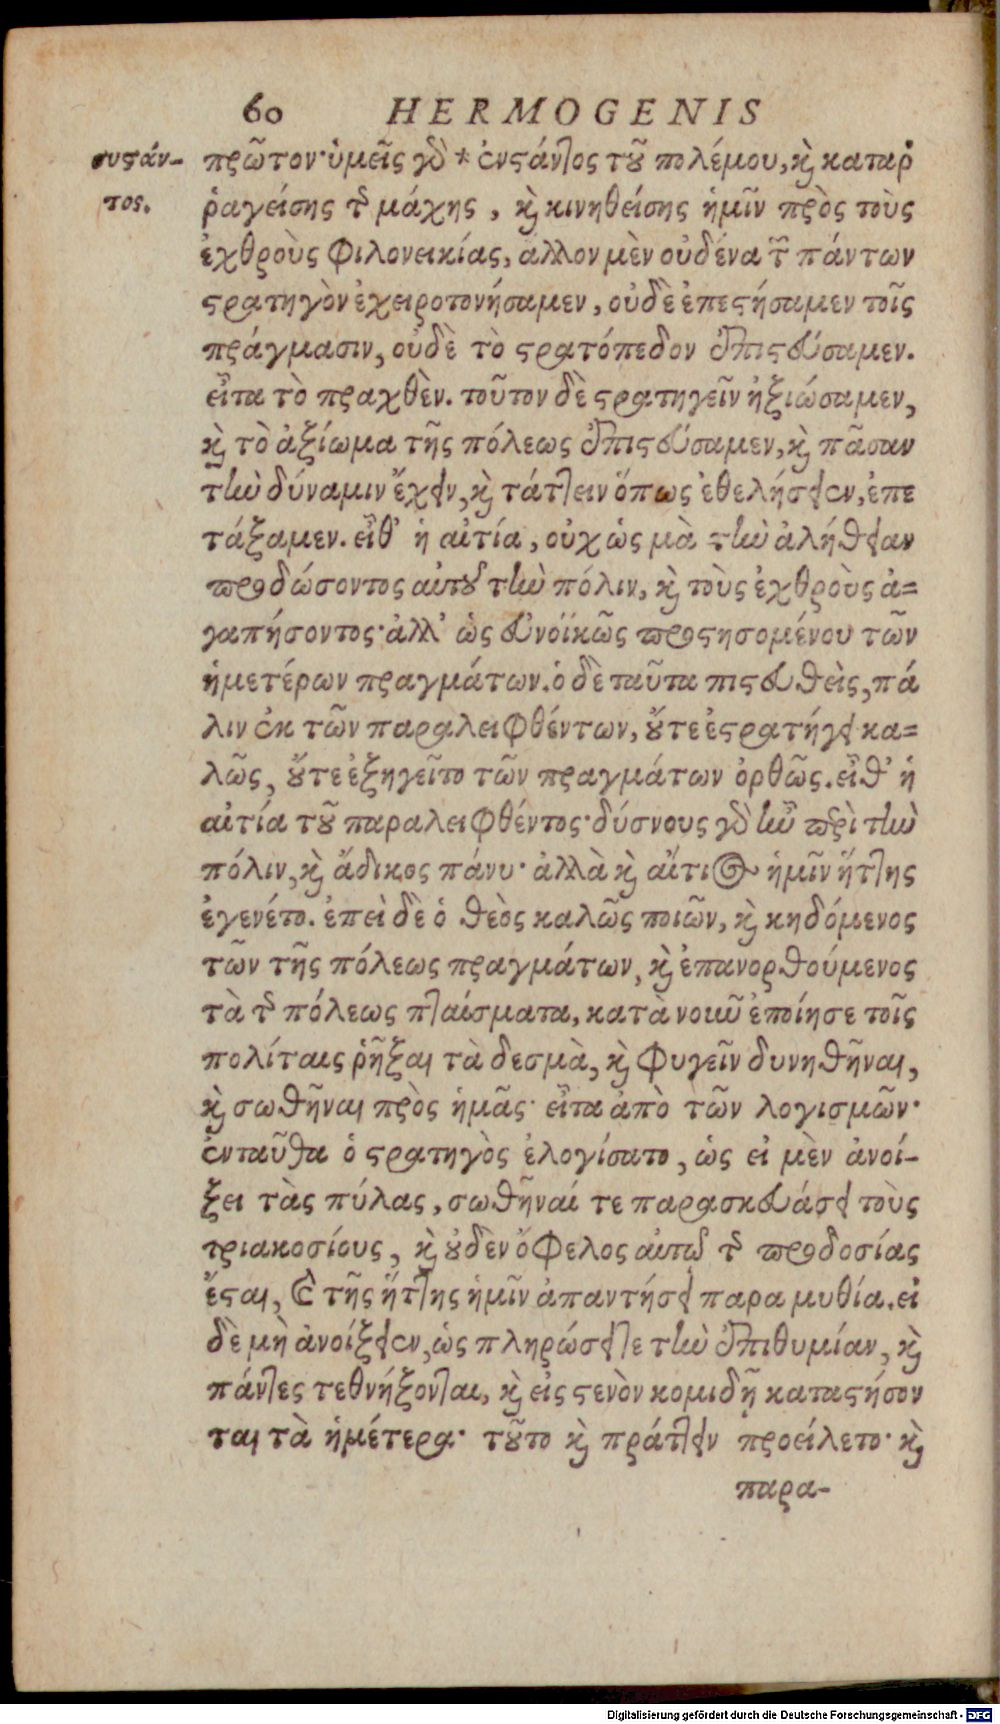 60 HERMOGENIS
συστάν-
τος.
πρῶτον· ὑμεῖς γὸ * ἐνστάντος τοῦ πολέμου, καὶ καταῤ
ῥαγείσης τῆς μάχης, καὶ κινηθείσης ἡμῖν πρὸς τοὺς
ἐχθροὺς φιλονεικίας, ἄλλον μὲν οὐδένα τῶν πάντων
στρατηγὸν ἐχειροτονήσαμεν, οὐδὲ ἐπεστήσαμεν τοῖς
πράγμασιν, οὐδὲ τὸ στρατόπεδον ἐπιστεύσαμεν.
εἶτα τὸ πραχθὲν. τοῦτον δὲ στρατηγεῖν ἠξιώσαμεν,
καὶ τὸ ἀξίωμα τῆς πόλεως ἐπιστεύσαμεν, καὶ πᾶσαν
τὴν δύναμιν ἔχειν, καὶ τάττειν ὅπως ἐθελήσειεν, ἐπε
τάξαμεν. εἶθ' ἡ αἰτία, οὐχ ὡς μὰ τὴν ἀλήθειαν
προδώσοντος αὐτοῦ τὴν πόλιν, καὶ τοὺς ἐχθροὺς ἀ-
γαπήσοντος· ἀλλ' ὡς εὐνοϊκῶς προστησομένου τῶν
ἡμετέρων πραγμάτων. ὁ δὲ ταῦτα πιστευθεὶς, πά
λιν ἐκ τῶν παραλειφθέντων, οὔτε ἐστρατήγει κα-
λῶς, οὔτε ἐξηγεῖτο τῶν πραγμάτων ὀρθῶς. εἶθ' ἡ
αἰτία τοῦ παραλειφθέντος· δύσνους γὸ ἦν περὶ τὴν
πόλιν, καὶ ἄδικος πάνυ· ἀλλὰ καὶ αἴτιος ἡμῖν ἥττης
ἐγενέτο. ἐπεὶ δὲ ὁ θεὸς καλῶς ποιῶν, καὶ κηδόμενος
τῶν τῆς πόλεως πραγμάτων, καὶ ἐπανορθούμενος
τὰ τῆς πόλεως πταίσματα, κατὰ νοῦν ἐποίησε τοῖς
πολίταις ῥῆξαι τὰ δεσμὰ, καὶ φυγεῖν δυνηθῆναι,
καὶ σωθῆναι πρὸς ἡμᾶς· εἶτα ἀπὸ τῶν λογισμῶν·
ἐνταῦθα ὁ στρατηγὸς ἐλογίσατο, ὡς εἰ μὲν ἀνοί-
ξει τὰς πύλας, σωθῆναί τε παρασκευάσει τοὺς
τριακοσίους, καὶ οὐδεν ὄφελος αὐτῷ τῆς προδοσίας
ἔσται, καὶ τῆς ἥττης ἡμῖν ἀπαντήσει παραμυθία. εἰ
δὲ μὴ ἀνοίξειεν, ὡς πληρώσειτε τὴν ἐπιθυμίαν, καὶ
πάντες τεθνήξονται, καὶ εἰς στενὸν κομιδῇ καταστήσον
ται τὰ ἡμέτερα· τοῦτο καὶ πράττειν προείλετο· καὶ
παρα-
Digitalisierung gefördert durch die Deutsche Forschungsgemeinschaft - DFG